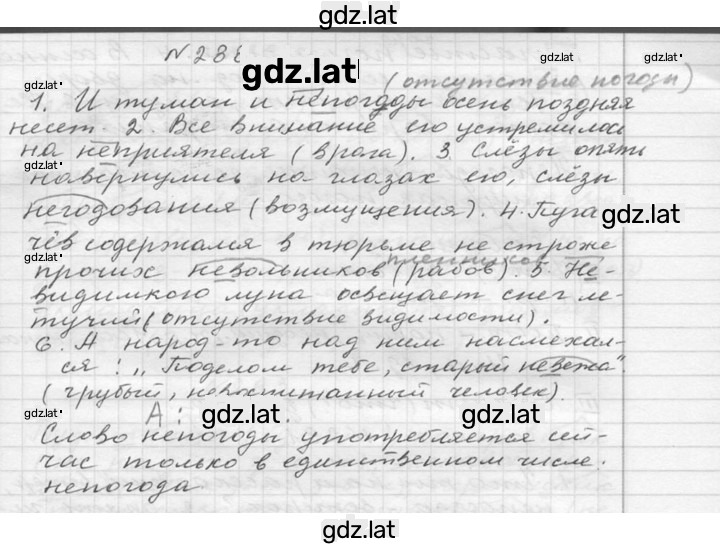 gdz.lat
№ 28
gdz.lat gdz.lat gdz.lat
gdz.lat (отсутствие погоды)
1. И туман и непогоды осень поздняя
несет. 2. Все внимание его устремилось
gdz.lat
на неприятеля (врага). 3. Слёзы опять
gdz.lat
навернулись на глазах его, слёзы
негодования (возмущения). 4. Пуга
gdz.lat
чёв содержался в тюрьме не строже
gdz.lat пленников
прочих невольников (рабов). 5. Не-
видимкою луна освещает снег ле-
тучий (отсутствие видимости).
gdz.lat
6. А народ-то над ним насмехал-
ся: „Поделом тебе, старый невежа“.
(грубый, невоспитанный человек).
gdz.lat А: gdz.lat gdz.lat
Слово непогоды употребляется сей-
час только в единственном числе:
gdz.lat
непогода
gdz.lat